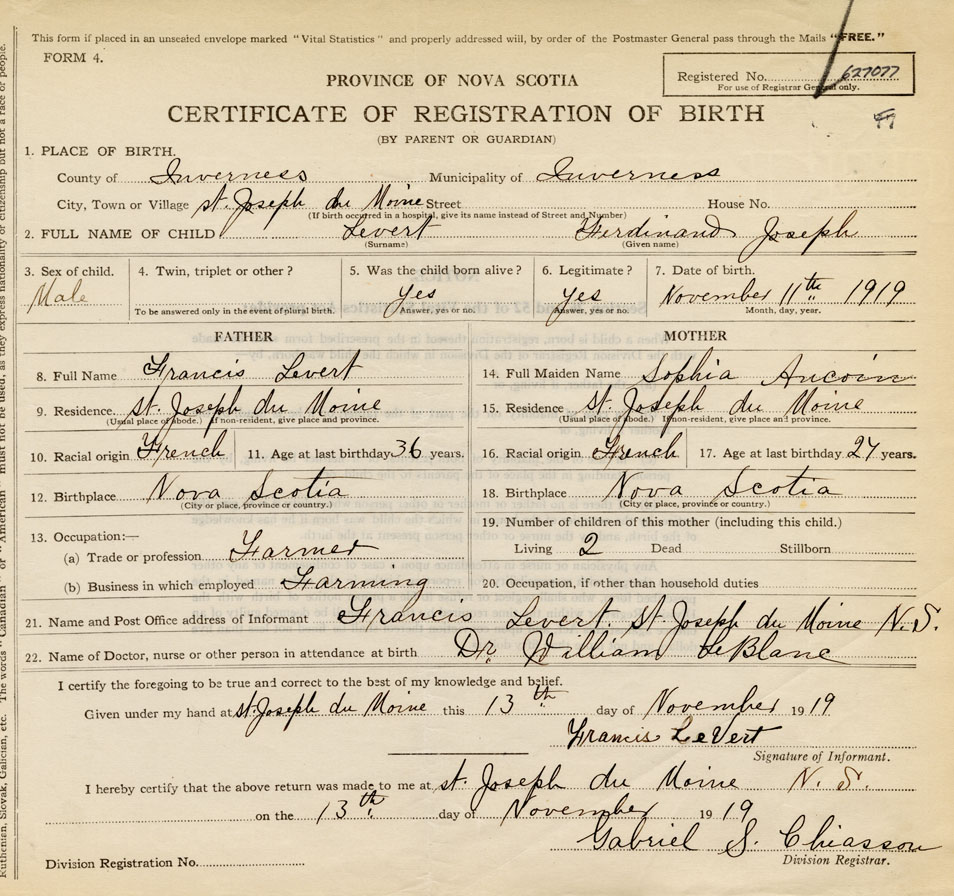 This form if placed in an unsealed envelope marked "Vital Statistics" and properly addressed will, by order of the Postmaster General pass through the Mails "FREE."
FORM 4.
PROVINCE OF NOVA SCOTIA
Registered No. 627077
For use of Registrar General only.
CERTIFICATE OF REGISTRATION OF BIRTH
(BY PARENT OR GUARDIAN)
1. PLACE OF BIRTH.
County of Inverness Municipality of Inverness
City, Town or Village St. Joseph du Moine Street House No.
(If birth occurred in a hospital, give its name instead of Street and Number)
2. FULL NAME OF CHILD Levert Ferdinand Joseph
(Surname) (Given name)
3. Sex of child. 4. Twin, triplet or other? 5. Was the child born alive? 6. Legitimate? 7. Date of birth.
Male Yes Yes November 11th 1919
To be answered only in the event of plural birth. Answer, yes or no. Answer, yes or no. Month, day, year.
FATHER MOTHER
8. Full Name Francis Levert 14. Full Maiden Name Sophia Aucoin
9. Residence St. Joseph du Moine 15. Residence St. Joseph du Moine
(Usual place of abode.) If non-resident, give place and province. (Usual place of abode.) If non-resident, give place and province.
10. Racial origin French 11. Age at last birthday 36 years. 16. Racial origin French 17. Age at last birthday 27 years.
12. Birthplace Nova Scotia 18. Birthplace Nova Scotia
(City or place, province or country.) (City or place, province or country.)
13. Occupation:— 19. Number of children of this mother (including this child.)
(a) Trade or profession Farmer Living 2 Dead Stillborn
(b) Business in which employed Farming 20. Occupation, if other than household duties
21. Name and Post Office address of Informant Francis Levert. St Joseph du Moine N.S.
22. Name of Doctor, nurse or other person in attendance at birth Dr. William LeBlanc
I certify the foregoing to be true and correct to the best of my knowledge and belief.
Given under my hand at St Joseph du Moine this 13th day of November 1919
Francis LeVert
Signature of Informant.
I hereby certify that the above return was made to me at St. Joseph du Moine N. S.
on the 13th. day of November 1919
Gabriel S. Chiasson
Division Registrar.
Division Registration No.
Ruthenian, Slovak, Galician, etc. The words "Canadian" or "American" must not be used, as they express nationality or citizenship but not a race or people.